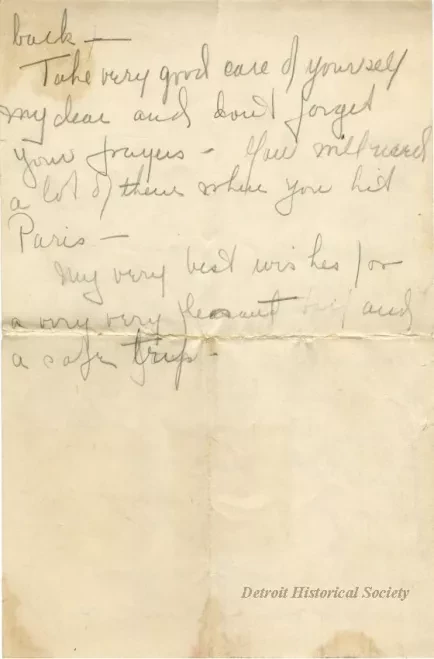 back —
Take very good care of yourself
my dear and don't forget
your prayers - You will need
a lot of them when you hit
Paris —
My very best wishes for
a very very pleasant and
a safe trip -
Detroit Historical Society